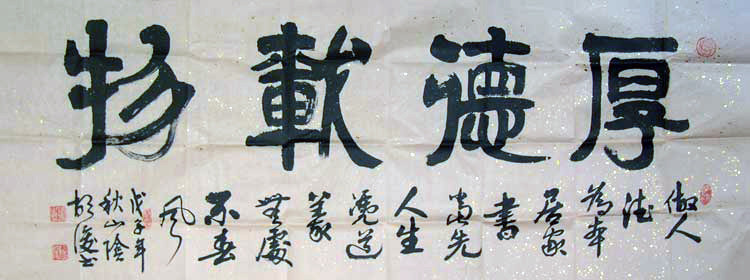 厚德載物
做人
德
為本
居家
書
當先
人生
憑道
義
無處
不春
風
戊子年
秋山陰